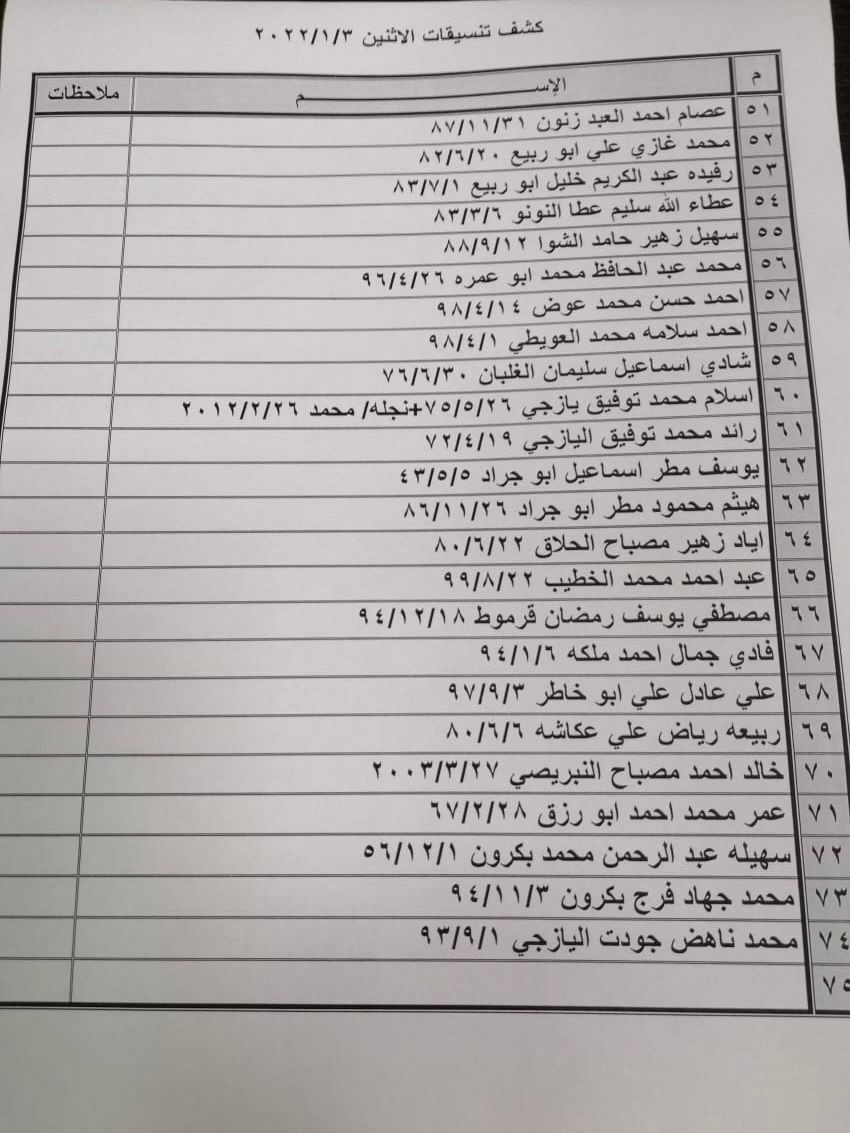 كشف تنسيقات الاثنين ٢٠٢٢/١/٣
م الإســـــــــم ملاحظات
٥١ عصام احمد العبد زنون ٨٧/١١/٣١
٥٢ محمد غازي علي ابو ربيع ٨٢/٦/٢٠
٥٣ رفيده عبد الكريم خليل ابو ربيع ٨٣/٧/١
٥٤ عطاء الله سليم عطا النونو ٨٣/٣/٦
٥٥ سهيل زهير حامد الشوا ٨٨/٩/١٢
٥٦ محمد عبد الحافظ محمد ابو عمره ٩٦/٤/٢٦
٥٧ احمد حسن محمد عوض ٩٨/٤/١٤
٥٨ احمد سلامه محمد العويطي ٩٨/٤/١
٥٩ شادي اسماعيل سليمان الغلبان ٧٦/٦/٣٠
٦٠ اسلام محمد توفيق يازجي ٧٥/٥/٢٦+نجله/ محمد ٢٠١٢/٢/٢٦
٦١ رائد محمد توفيق اليازجي ٧٢/٤/١٩
٦٢ يوسف مطر اسماعيل ابو جراد ٤٣/٥/٥
٦٣ هيثم محمود مطر ابو جراد ٨٦/١١/٢٦
٦٤ اياد زهير مصباح الحلاق ٨٠/٦/٢٢
٦٥ عبد احمد محمد الخطيب ٩٩/٨/٢٢
٦٦ مصطفي يوسف رمضان قرموط ٩٤/١٢/١٨
٦٧ فادي جمال احمد ملكه ٩٤/١/٦
٦٨ علي عادل علي ابو خاطر ٩٧/٩/٣
٦٩ ربيعه رياض علي عكاشه ٨٠/٦/٦
٧٠ خالد احمد مصباح النبريصي ٢٠٠٣/٣/٢٧
٧١ عمر محمد احمد ابو رزق ٦٧/٢/٢٨
٧٢ سهيله عبد الرحمن محمد بكرون ٥٦/١٢/١
٧٣ محمد جهاد فرج بكرون ٩٤/١١/٣
٧٤ محمد ناهض جودت اليازجي ٩٣/٩/١
٧٥